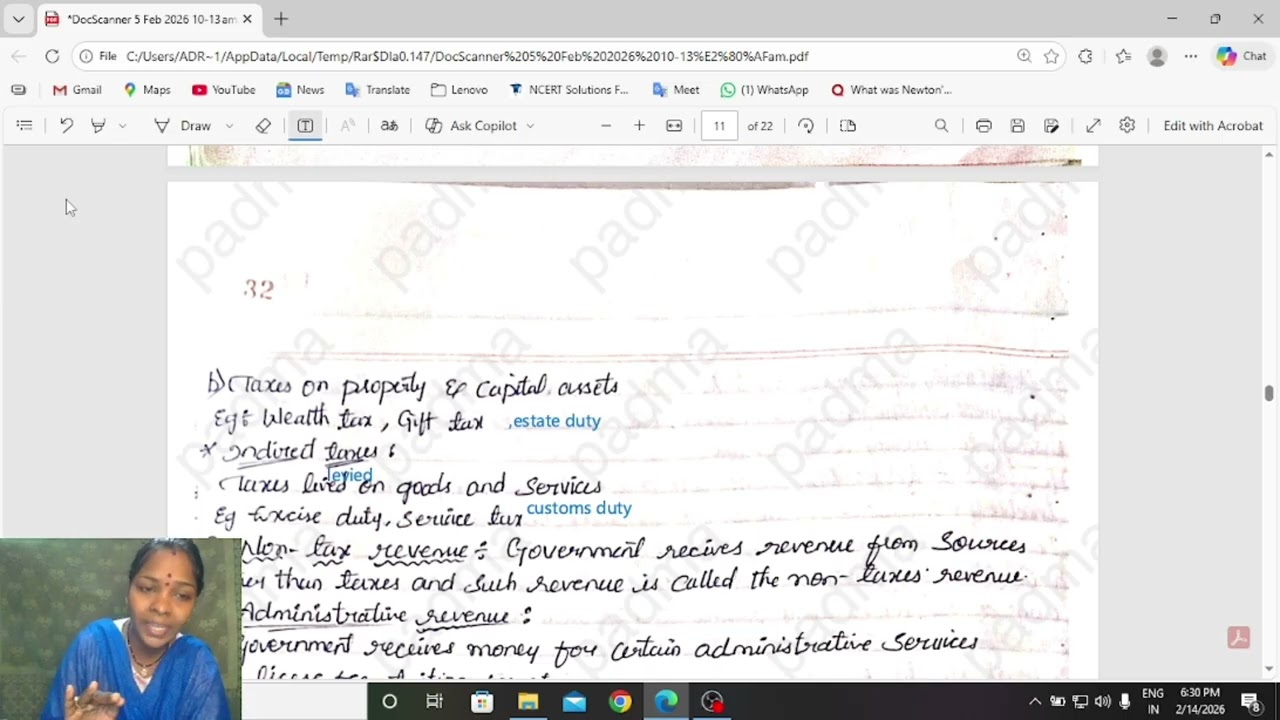 *DocScanner 5 Feb 2026 10-13 am
File C:/Users/ADR~1/AppData/Local/Temp/Rar$DIa0.147/DocScanner%205%20Feb%202026%2010-13%E2%80%AFam.pdf
Chat
Gmail Maps YouTube News Translate Lenovo NCERT Solutions F... Meet (1) WhatsApp What was Newton'...
Draw Ask Copilot 11 of 22 Edit with Acrobat
padma padma padma padma padma
32
padma padma padma padma padma
b) Taxes on property & capital assets
Eg: Wealth tax, Gift tax ,estate duty
* Indirect taxes:
levied
Taxes lived on goods and services
Eg Excise duty, Service tax customs duty
Non-tax revenue: Government recives revenue from sources
than taxes and such revenue is called the non-taxes revenue.
Administrative revenue:
Government receives money for certain administrative services
ENG
IN
6:30 PM
2/14/2026
8